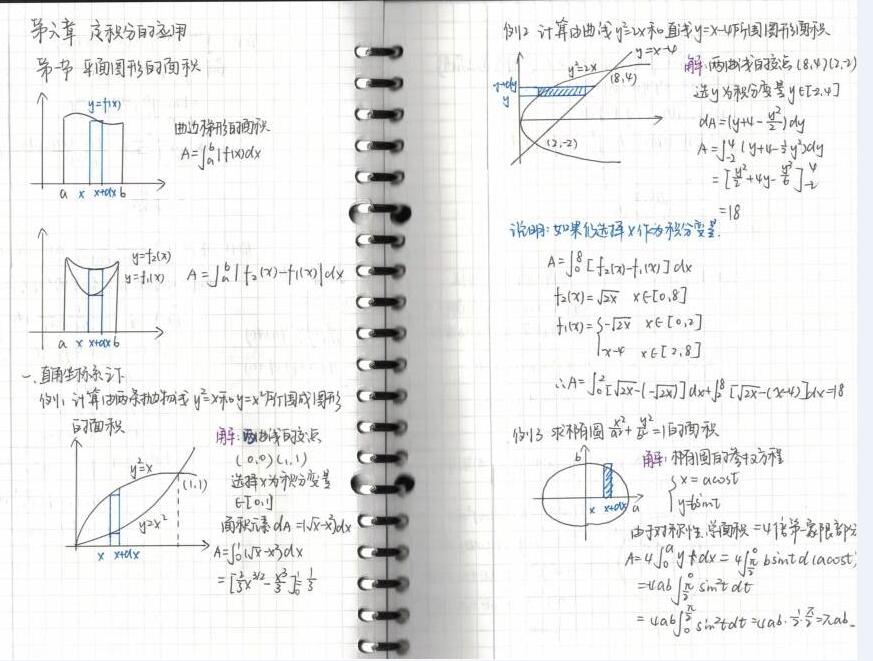 第六章 定积分的应用
第一节 平面图形的面积
y=f(x)
曲边梯形的面积
A=∫_a^b |f(x)|dx
a x x+dx b
y=f₂(x)
y=f₁(x)
A=∫_a^b |f₂(x)-f₁(x)|dx
a x x+dx b
一.直角坐标系下
例1. 计算由两条抛物线 y²=x和y=x²所围成图形
的面积
y²=x
(1,1)
y=x²
x x+dx
解:两曲线的交点
(0,0)(1,1)
选择x为积分变量
∈[0,1]
面积元素 dA=(√x-x²)dx
A=∫_0^1(√x-x²)dx
=[2/3 x^{3/2}-x³/3]_0^1=1/3
例2 计算由曲线y²=2x和直线y=x-4所围图形面积
y=x-4
y²=2x
(8,4)
y+dy
y
(2,-2)
解:两曲线的交点(8,4)(2,-2)
选y为积分变量 y∈[-2,4]
dA=(y+4-y²/2)dy
A=∫_{-2}^4(y+4-½y²)dy
=[y²/2+4y-y³/6]_{-2}^4
=18
说明:如果选择x作为积分变量.
A=∫_0^8[f₂(x)-f₁(x)]dx
f₂(x)=√2x x∈[0,8]
f₁(x)={-√2x x∈[0,2]
x-4 x∈[2,8]
∴A=∫_0^2[√2x-(-√2x)]dx+∫_2^8[√2x-(x-4)]dx=18
例3 求椭圆 x²/a²+y²/b²=1的面积
b
x x+dx a
解:椭圆的参数方程
{x=acost
y=bsint
由于对称性,总面积=4倍第一象限部分
A=4∫_0^a ydx=4∫_{π/2}^0 bsint d(acost)
=-4ab∫_{π/2}^0 sin²t dt
=4ab∫_0^{π/2} sin²tdt=4ab·1/2·π/2=πab